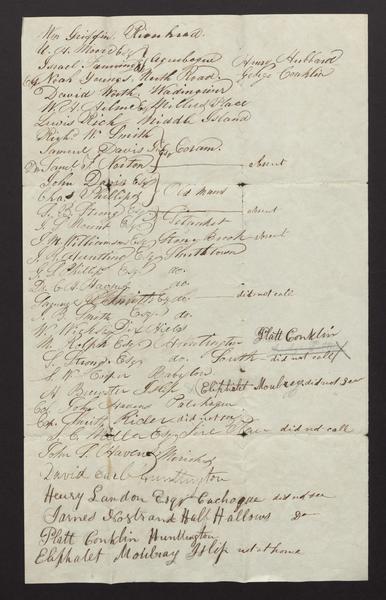 Wm Griffin Riverhead
U. H. Moore Esq
Israel Fanning Aquebogue Henry Hubbard
Noah Youngs North Road George Conklin
David Worth Wadingriver
W. S. Helme Esq Millers Place
Lewis Rich Middle Island
Richd. W. Smith
Samuel Davis Esq Coram.
Saml. F. Norton absent
John Davis Esq
Chas Phillips Old mans
T. S. Strong Esq absent
Mount Esq Setauket
Williamson Esq Stony Brook absent
Huntting Esq Smithtown
Phillips Esq do.
Dr. do.
Smith Esq do. did not call
Smith Esq do.
W. Wicks Dix Hills
M. Rolph Esq Huntington Platt Conklin
S. Strong Esq do. South did not call
S. W. Cooper Babylon
A. Brewster Islip Eliphalet Mowbray did not see
Col. John Havens Patchogue
Smith River did not
Miller Esq Fire Place did not call
John S. Havens Moriches
David Carll Huntington
Henry Landon Esqr Cuchogue did not see
James Nostrand Half Hallows do
Platt Conklin Hunttington
Eliphalet Mowbray Islip not at home